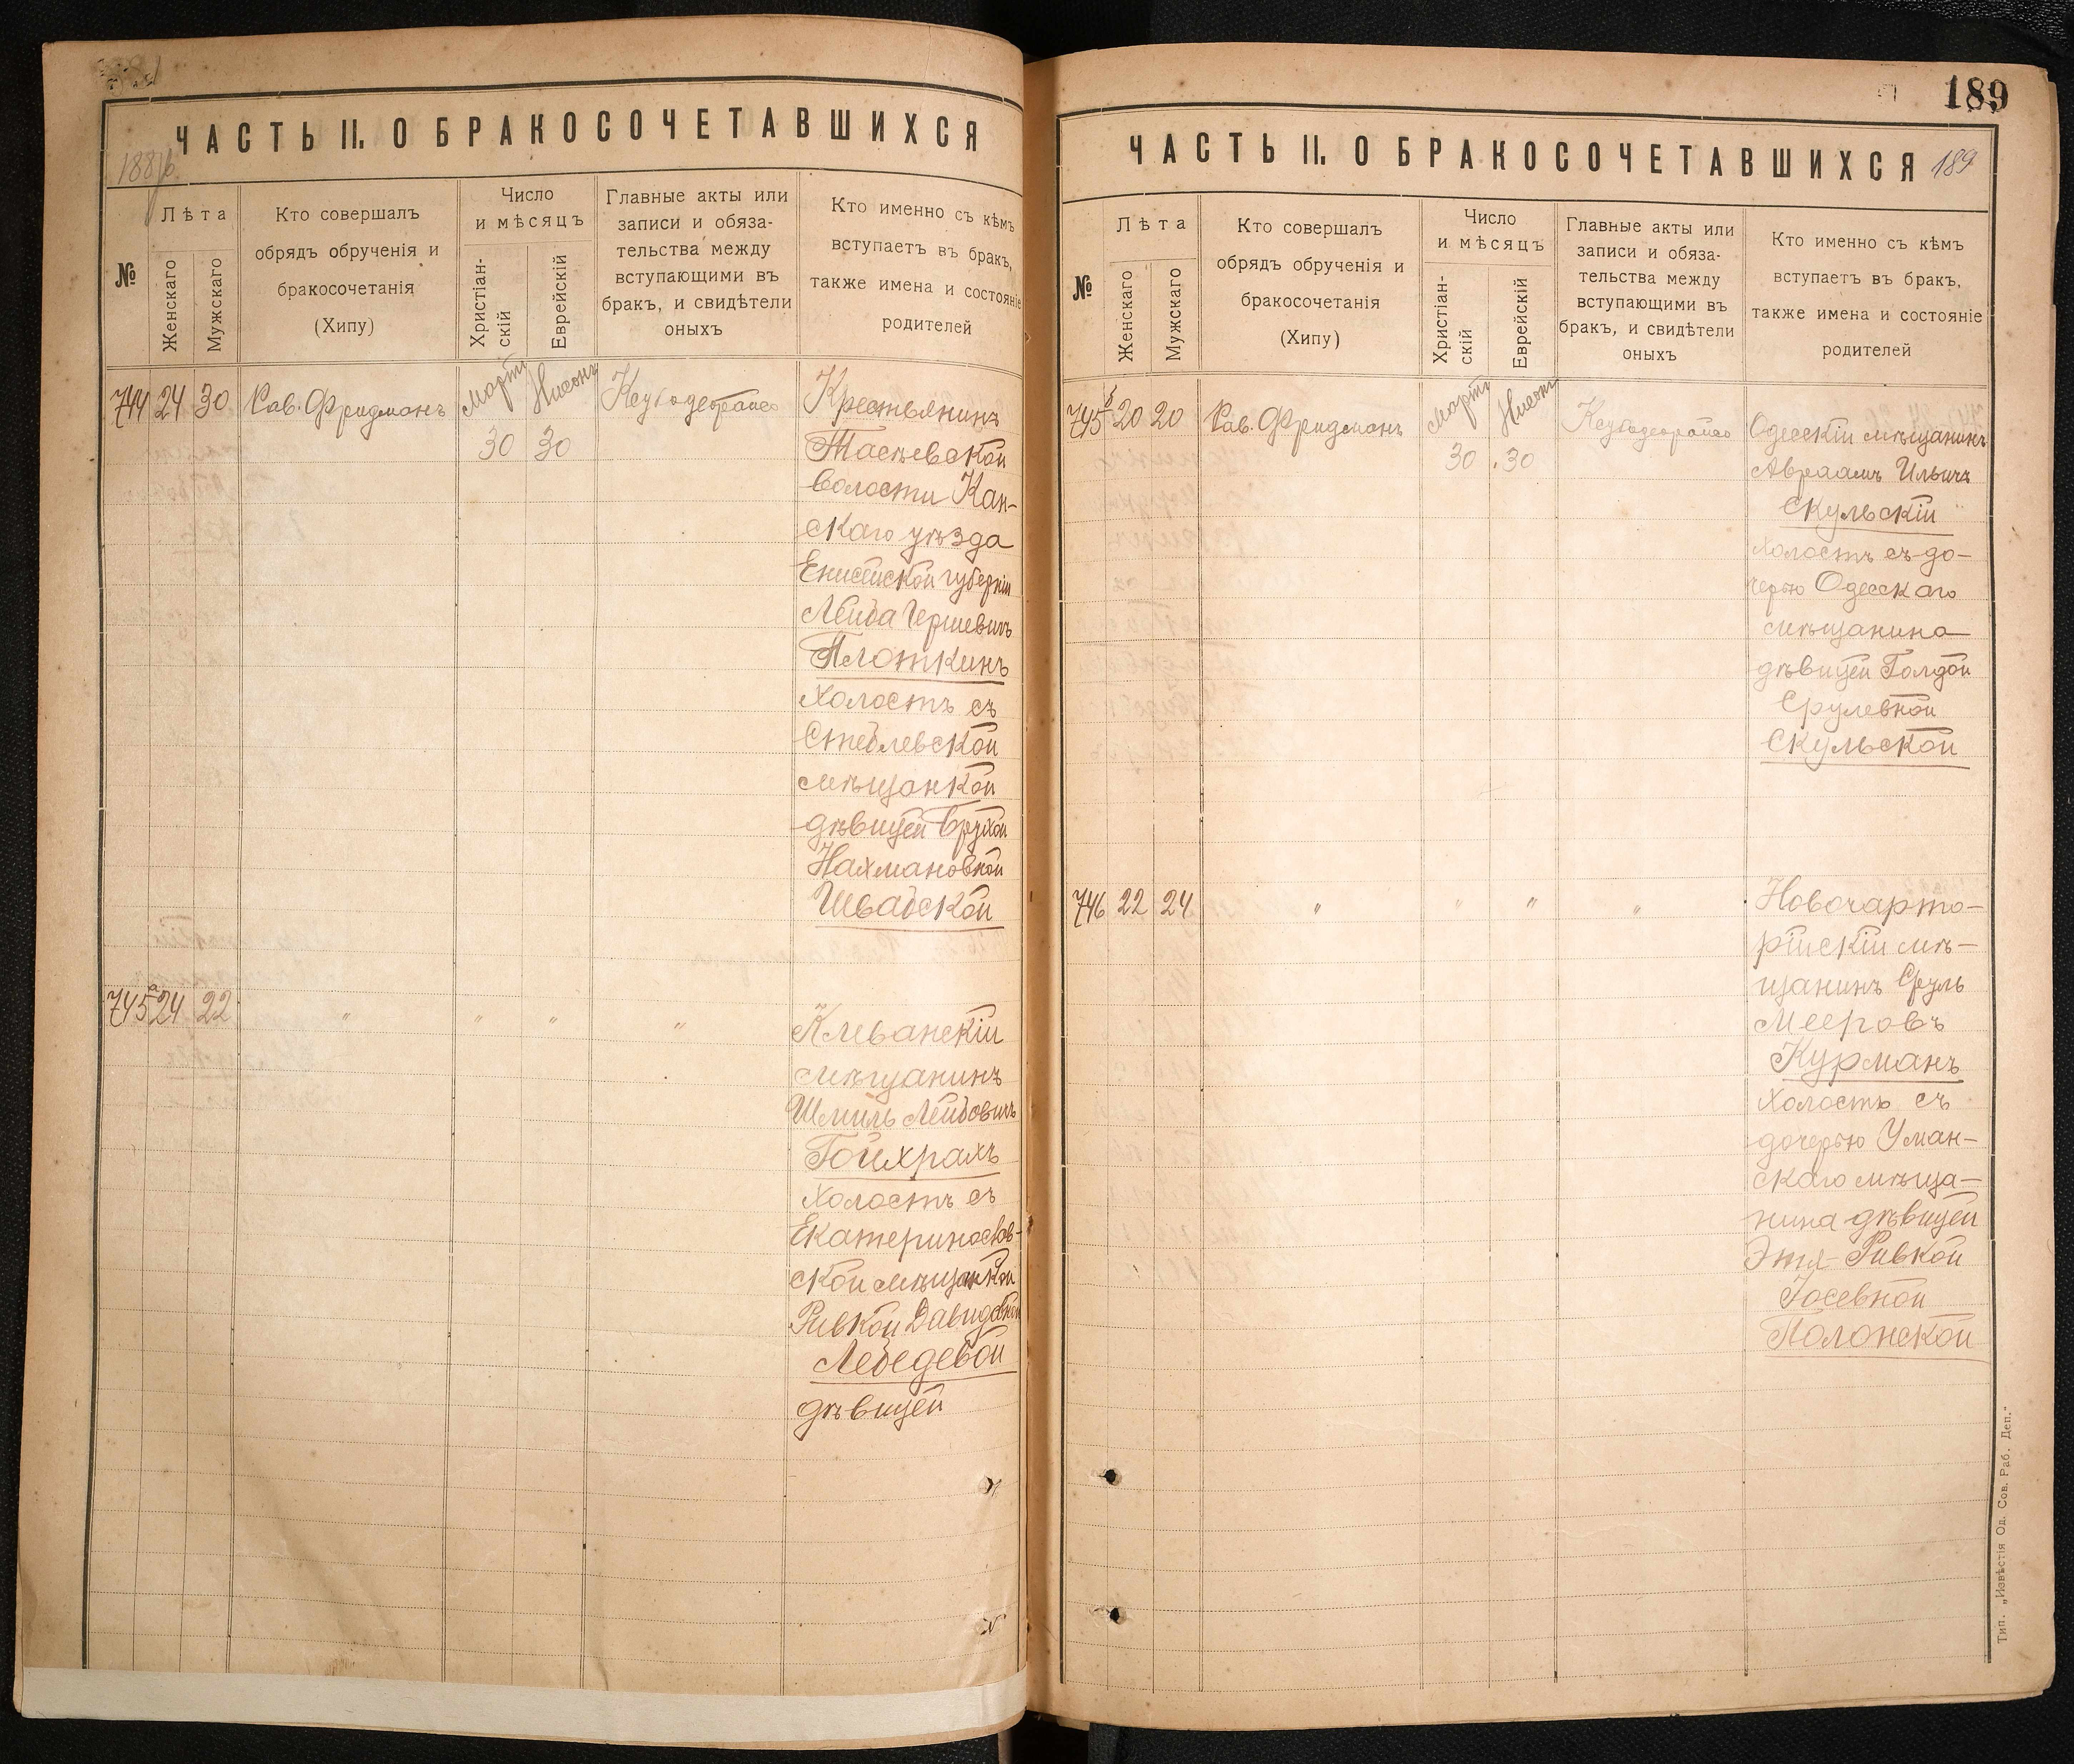 ЧАСТЬ II. О БРАКОСОЧЕТАВШИХСЯ
№
Лѣта
Женскаго
Мужскаго
Кто совершалъ
обрядъ обрученія и
бракосочетанія
(Хипу)
Число
и мѣсяцъ
Христіан-
скій
Еврейскій
Главные акты или
записи и обяза-
тельства между
вступающими въ
бракъ, и свидѣтели
оныхъ
Кто именно съ кѣмъ
вступаетъ въ бракъ,
также имена и состояніе
родителей
744 24 30 Рав. Фридманъ Мартъ Нисонъ Крестьянинъ
30 30 Тасѣевской
волости Кан-
скаго уѣзда
Енисейской губерніи
Лейба Гершевичъ
Плоткинъ
Холостъ съ
Стеблевской
мѣщанкой
дѣвицей Брухой
Нахмановной
Швабской
745а 24 22 " " " " Клеванскій
мѣщанинъ
Шмиль Лейбовичъ
Гойхрахъ
Холостъ съ
Екатеринослав-
ской мѣщанкой
Ривкой Давидовной
Лебедевой
дѣвицей
189
ЧАСТЬ II. О БРАКОСОЧЕТАВШИХСЯ 189
№
Лѣта
Женскаго
Мужскаго
Кто совершалъ
обрядъ обрученія и
бракосочетанія
(Хипу)
Число
и мѣсяцъ
Христіан-
скій
Еврейскій
Главные акты или
записи и обяза-
тельства между
вступающими въ
бракъ, и свидѣтели
оныхъ
Кто именно съ кѣмъ
вступаетъ въ бракъ,
также имена и состояніе
родителей
745б 20 20 Рав. Фридманъ Мартъ Нисонъ Одесскій мѣщанинъ
30 30 Авраамъ Ильичъ
Скульскій
холостъ съ до-
черью Одесскаго
мѣщанина
дѣвицей Голдой
Срулевной
Скульской
746 22 24 " " " " Новочарто-
рійскій мѣ-
щанинъ Сруль
Мееровъ
Курманъ
Холостъ съ
дочерью Уман-
скаго мѣща-
нина дѣвицей
Этя-Ривкой
Іосевной
Полонской
Тип. „Извѣстія Од. Сов. Раб. Деп."